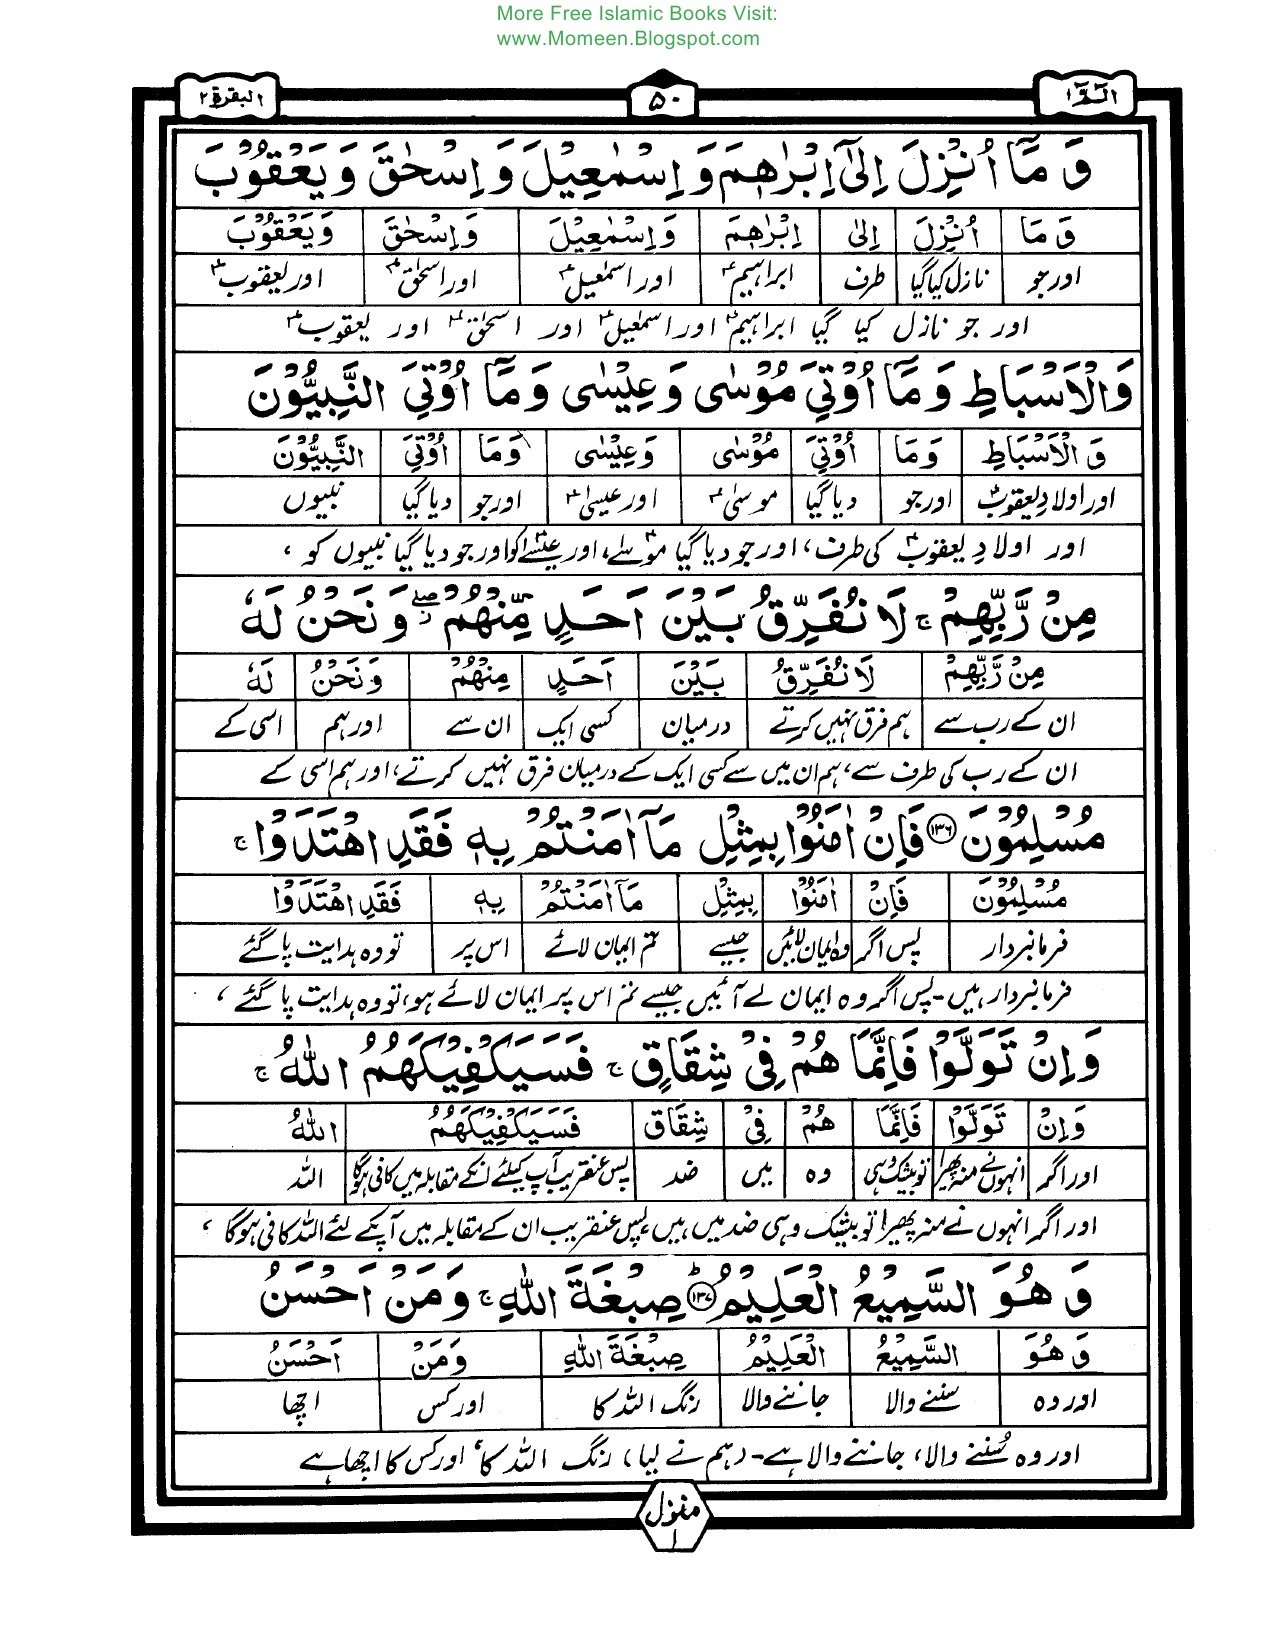 More Free Islamic Books Visit:
www.Momeen.Blogspot.com
الٓمّٓ ١ ۵۰ البقرة ٢
وَمَآ اُنْزِلَ اِلٰٓى اِبْرٰهٖمَ وَ اِسْمٰعِيْلَ وَ اِسْحٰقَ وَ يَعْقُوْبَ
وَمَآ اُنْزِلَ اِلٰٓى اِبْرٰهٖمَ وَ اِسْمٰعِيْلَ وَ اِسْحٰقَ وَيَعْقُوْبَ
اور جو نازل کیا گیا طرف ابراہیمؑ اور اسمٰعیلؑ اور اسحٰقؑ اور یعقوبؑ
اور جو نازل کیا گیا ابراہیمؑ اور اسمٰعیلؑ اور اسحٰقؑ اور یعقوبؑ
وَالْاَسْبَاطِ وَ مَآ اُوْتِيَ مُوْسٰى وَ عِيْسٰى وَ مَآ اُوْتِيَ النَّبِيُّوْنَ
وَ الْاَسْبَاطِ وَ مَآ اُوْتِيَ مُوْسٰى وَ عِيْسٰى وَمَآ اُوْتِيَ النَّبِيُّوْنَ
اور اولادِ یعقوبؑ اور جو دیا گیا موسٰیؑ اور عیسٰیؑ اور جو دیا گیا نبیوں
اور اولادِ یعقوبؑ کی طرف، اور جو دیا گیا موسٰےؑ، اور عیسٰےؑ کو اور جو دیا گیا نبیوں کو،
مِنْ رَّبِّهِمْ ۚ لَا نُفَرِّقُ بَيْنَ اَحَدٍ مِّنْهُمْ ۖ وَ نَحْنُ لَهٗ
مِنْ رَّبِّهِمْ لَا نُفَرِّقُ بَيْنَ اَحَدٍ مِنْهُمْ وَنَحْنُ لَهٗ
ان کے رب سے ہم فرق نہیں کرتے درمیان کسی ایک ان سے اور ہم اسی کے
ان کے رب کی طرف سے، ہم ان میں سے کسی ایک کے درمیان فرق نہیں کرتے، اور ہم اسی کے
مُسْلِمُوْنَ ۝١٣٦ فَاِنْ اٰمَنُوْا بِمِثْلِ مَآ اٰمَنْتُمْ بِهٖ فَقَدِ اهْتَدَوْا ۚ
مُسْلِمُوْنَ فَاِنْ اٰمَنُوْا بِمِثْلِ مَآ اٰمَنْتُمْ بِهٖ فَقَدِ اهْتَدَوْا
فرمانبردار پس اگر وہ ایمان لائیں جیسے تم ایمان لائے اس پر تو وہ ہدایت پا گئے
فرمانبردار ہیں۔ پس اگر وہ ایمان لے آئیں جیسے تم اس پر ایمان لائے ہو، تو وہ ہدایت پا گئے،
وَ اِنْ تَوَلَّوْا فَاِنَّمَا هُمْ فِيْ شِقَاقٍ ۚ فَسَيَكْفِيْكَهُمُ اللّٰهُ ۚ
وَ اِنْ تَوَلَّوْا فَاِنَّمَا هُمْ فِيْ شِقَاق فَسَيَكْفِيْكَهُمُ اللّٰهُ
اور اگر انہوں نے منہ پھیرا تو بیشک وہی وہ میں ضد پس عنقریب آپ کیلئے انکے مقابلہ میں کافی ہوگا اللہ
اور اگر انہوں نے منہ پھیرا تو بیشک وہی ضد میں ہیں، پس عنقریب ان کے مقابلہ میں آپکے لئے اللہ کافی ہوگا،
وَ هُوَ السَّمِيْعُ الْعَلِيْمُ ۝١٣٧ؕ صِبْغَةَ اللّٰهِ ۚ وَ مَنْ اَحْسَنُ
وَ هُوَ السَّمِيْعُ الْعَلِيْمُ صِبْغَةَ اللّٰهِ وَمَنْ اَحْسَنُ
اور وہ سننے والا جاننے والا رنگ اللہ کا اور کس اچھا
اور وہ سُننے والا، جاننے والا ہے۔ (ہم نے لیا) رنگ اللہ کا، اور کس کا اچھا ہے
منزل
١